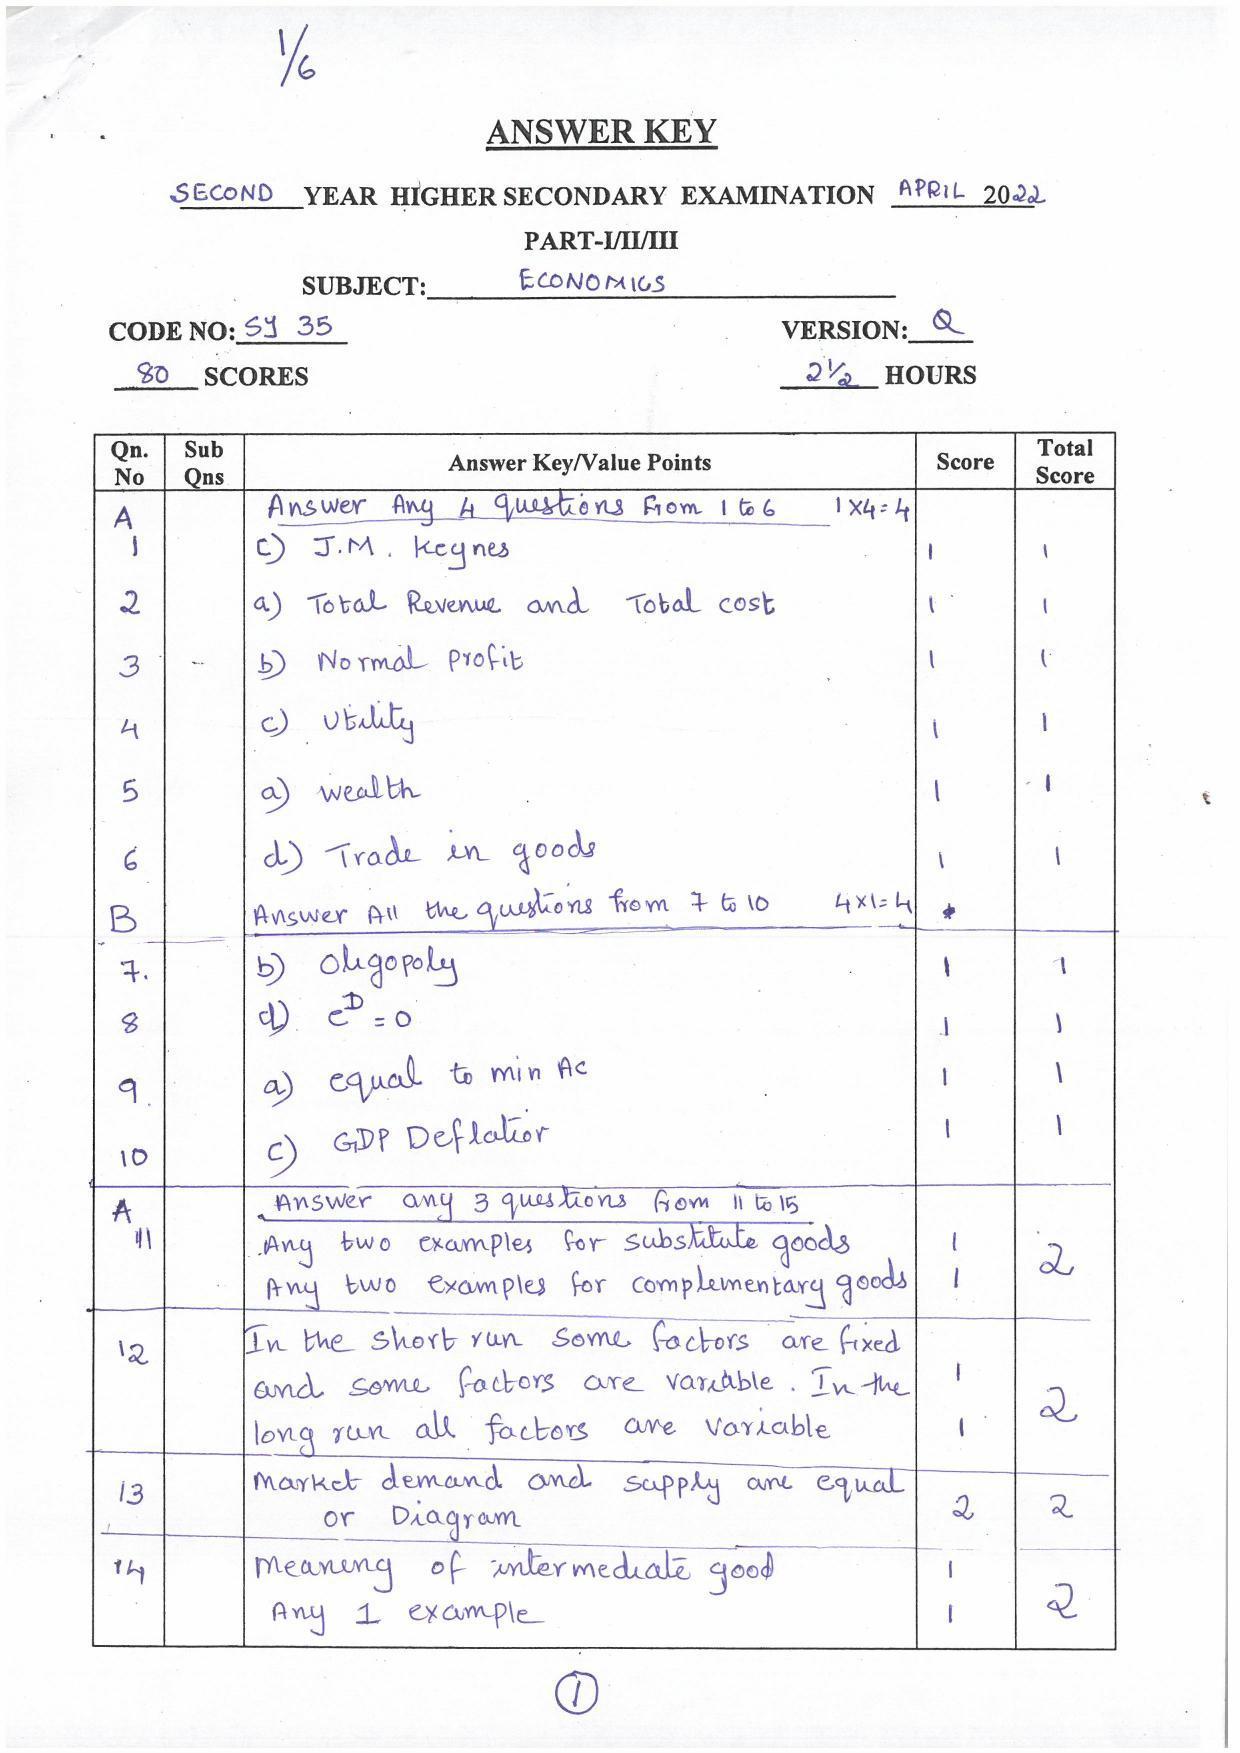 1/6
ANSWER KEY
SECOND YEAR HIGHER SECONDARY EXAMINATION APRIL 2022
PART-I/II/III
SUBJECT: ECONOMICS
CODE NO: SY 35 VERSION: Q
80 SCORES 2½ HOURS
Qn. No Sub Qns Answer Key/Value Points Score Total Score
A Answer Any 4 questions from 1 to 6 1×4=4
1 c) J.M. Keynes 1 1
2 a) Total Revenue and Total cost 1 1
3 b) Normal profit 1 1
4 c) Utility 1 1
5 a) wealth 1 1
6 d) Trade in goods 1 1
B Answer All the questions from 7 to 10 4×1=4
7. b) Oligopoly 1 1
8 d) eD = 0 1 1
9. a) equal to min AC 1 1
10 c) GDP Deflatior 1 1
A Answer any 3 questions from 11 to 15
11 Any two examples for substitute goods 1
Any two examples for complementary goods 1 2
12 In the short run some factors are fixed
and some factors are variable. In the 1
long run all factors are variable 1 2
13 Market demand and supply are equal
or Diagram 2 2
14 Meaning of intermediate good 1
Any 1 example 1 2
1